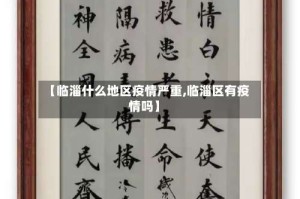 【临淄什么地区疫情严重,临淄区有疫
情吗】
情白天使
救患者命
隔病傳播
神全國人民齊